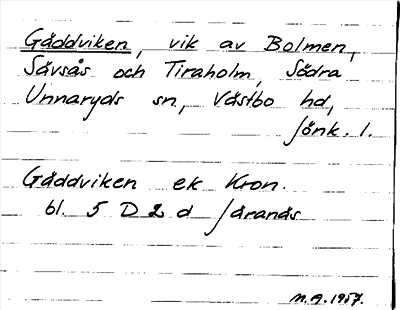 Gäddviken, vik av Bolmen,
Sävsås och Tiraholm, Södra
Unnaryds sn, Västbo hd,
Jönk. l.
Gäddviken ek Kron.
bl. 5 D 2 d Järanäs
M.A. 1957.